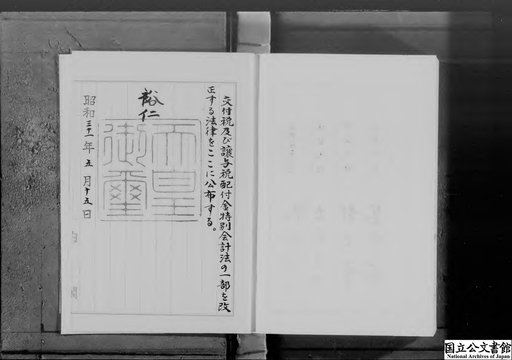 交付税及び譲与税配付金特別会計法の一部を改
正する法律をここに公布する。
裕仁
天皇
御璽
昭和三十一年五月十五日
国立公文書館
National Archives of Japan